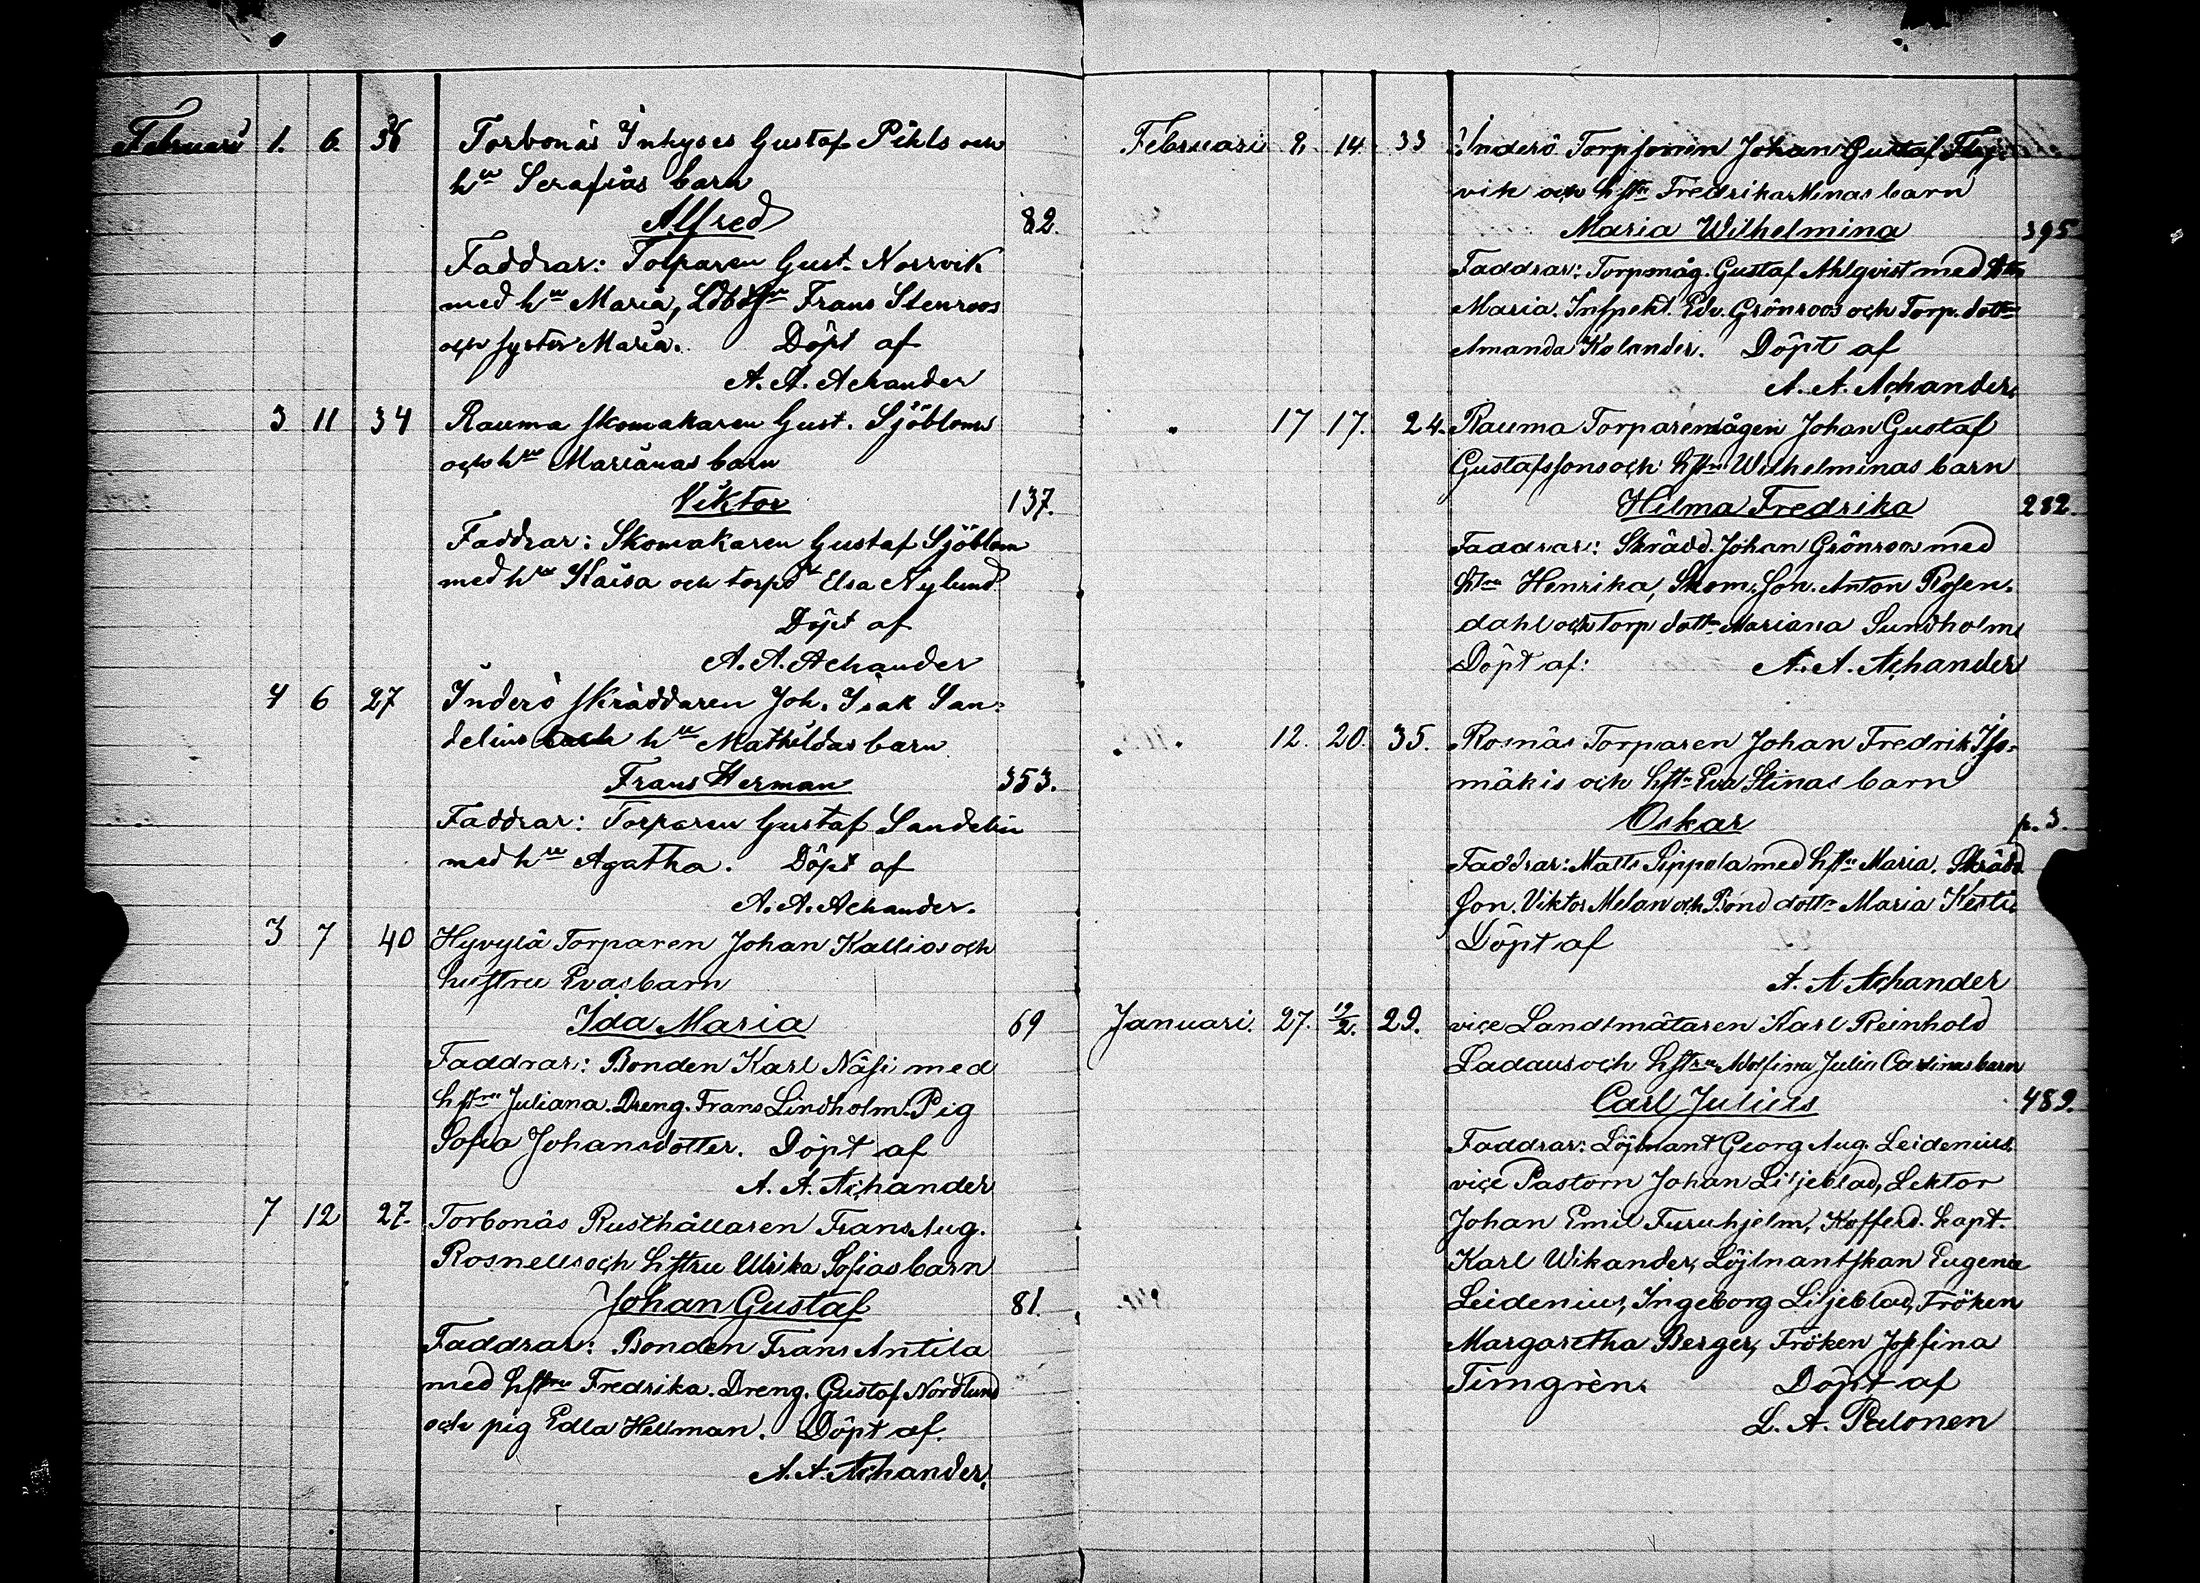 Februari 1. 6. 36 Torbonäs Inhyses Gustaf Pihls och
hu Serafias barn
Alfred 82.
Faddrar: Torparen Gust. Norrvik
med hu Maria, Frans Stenroos
och syster Maria. Döpt af
A. A. Achander
3 11 34 Rauma skomakaren Gust. Sjöbloms
och hu Marianas barn
Viktor 137.
Faddrar: Skomakaren Gustaf Sjöblom
med hu Kaisa och torpd Elsa Nylund.
Döpt af
A. A. Achander
4 6 27 Inderö skräddaren Joh. Isak San-
delins hu Mathildas barn
Frans Herman 353.
Faddrar: Torparen Gustaf Sandelin
med hu Agatha. Döpt af
A. A. Achander.
3 7 40 Hyvylä Torparen Johan Kallios och
hustru Evas barn
Ida Maria 69
Faddrar: Bonden Karl Näsi med
hstru Juliana. Dreng. Frans Lindholm. Pig
Sofia Johansdotter. Döpt af
A. A. Achander
7 12 27. Torbonäs Rusthållaren Frans Aug.
Rosnells och hstru Ulrika Sofias barn
Johan Gustaf 81.
Faddrar: Bonden Frans Antila
med hstru Fredrika. Dreng. Gustaf Nordlund
och pig Edla Hellman. Döpt af.
A. A. Achander.
Februari 9. 14. 33 Inderö Torpsonen Johan Gustaf
vik och hstru Fredrika Minas barn
Maria Wilhelmina 395
Faddrar: Torpmåg. Gustaf Ahlqvist med
Maria. Inspekt. Edv. Grönroos och Torp. dottr
Amanda Kolander. Döpt af
A. A. Achander.
" 17 17. 24. Rauma Torparemågen Johan Gustaf
Gustafssons och hstru Wilhelminas barn
Hilma Fredrika 282.
Faddrar: Skrädd. Johan Grönroos med
hstru Henrika, Skom. son. Anton Rosen-
dahl och Torp dottr Mariana Sundholm
Döpt af: A. A. Achander
" 12. 20. 35. Rosnäs Torparen Johan Fredrik Iso-
mäkis och hstru Eva Stinas barn
Oskar p. 3.
Faddrar: Matts Pippola med hstru Maria. Skrädd
son. Viktor Melan och Bond dottr Maria Kesti.
Döpt af
A. A Achander
Januari. 27. 19/2. 29. vice Landtmätaren Karl Reinhold
Ladaus och hstru Adolfina Julia Carolinas barn
Carl Julius 489.
Faddrar: Löjtnant Georg Aug. Leidenius.
vice Pastorn Johan Liljeblad, Lektor
Johan Emil Furuhjelm, Kofferd. kapt.
Karl Wikander, Löjtnantskan Eugenie
Leidenius, Ingeborg Liljeblad, Fröken
Margaretha Berger, Fröken Josefina
Timgrèn. Döpt af
L. A. Palonen